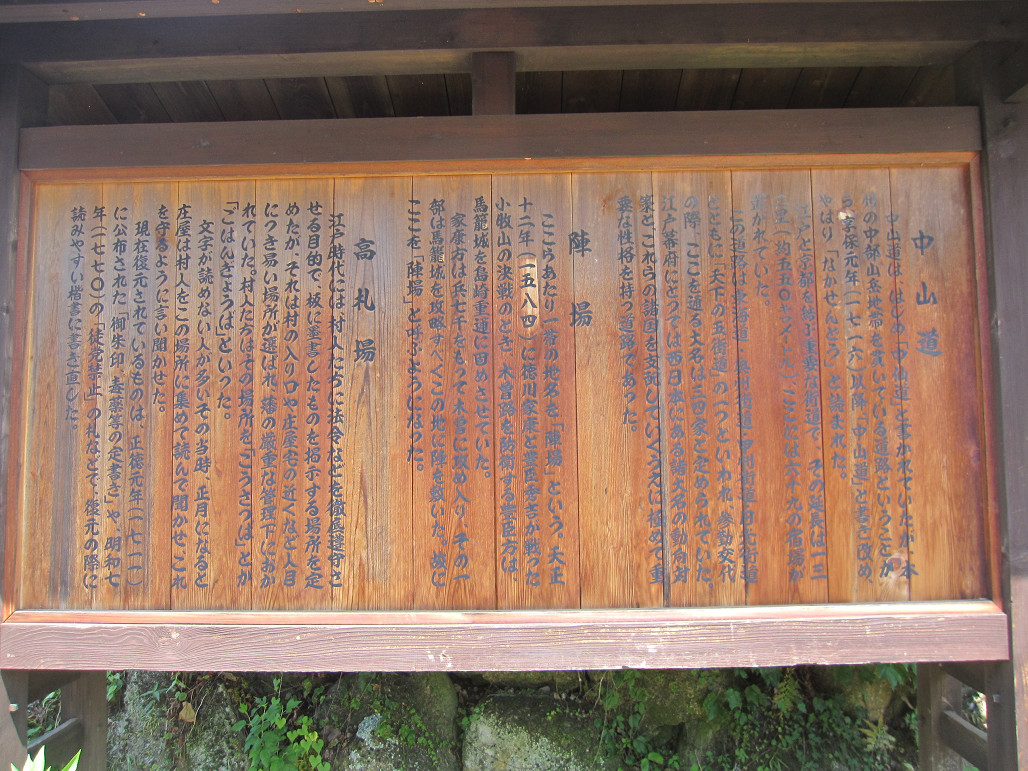 中山道
中山道は、はじめ「中仙道」と書かれていたが、本
州の中部山岳地帯を貫いている道路ということか
ら享保元年(一七一六)以降「中山道」と書き改め、
やはり「なかせんどう」と読まれた。
江戸と京都を結ぶ重要な街道で、その延長は一三
里(約五五〇キロメートル)ここには六十九の宿場が
置かれていた。
この道路は東海道・奥州街道・甲州街道・日光街道
とともに「天下の五街道」の一つといわれ、参勤交代
の際、ここを通る大名は三四家と定められていた。
江戸幕府にとっては西日本にある諸大名の動向対
策と、これらの諸国を支配していくうえに極めて重
要な性格を持つ道路であった。
陣場
ここらあたり一帯の地名を「陣場」という。天正
十二年(一五八四)に徳川家康と豊臣秀吉が戦った
小牧山の決戦のとき、木曽路を防衛する豊臣方は、
馬籠城を島崎重通に固めさせていた。
家康方は兵七千をもって木曽に攻め入り、その一
部は馬籠城を攻略すべくこの地に陣を敷いた。故に
ここを「陣場」と呼ぶようになった。
高札場
江戸時代には、村人たちに法令などを徹底遵守さ
せる目的で、板に墨書したものを掲示する場所を定
めたが、それは村の入り口や庄屋宅の近くなど人目
につき易い場所が選ばれ、藩の厳重な管理下におか
れていた。村人たちはその場所を「こうさつば」とか
「ごはんぎょうば」といった。
文字が読めない人が多いその当時、正月になると
庄屋は村人をこの場所に集めて読んで聞かせ、これ
を守るように言い聞かせた。
現在復元されているものは、正徳元年(一七一一)
に公布された「御朱印・毒薬等の定書き」や、明和七
年(一七七〇)の「徒党禁止」の札などで、復元の際に
読みやすい楷書に書き直した。